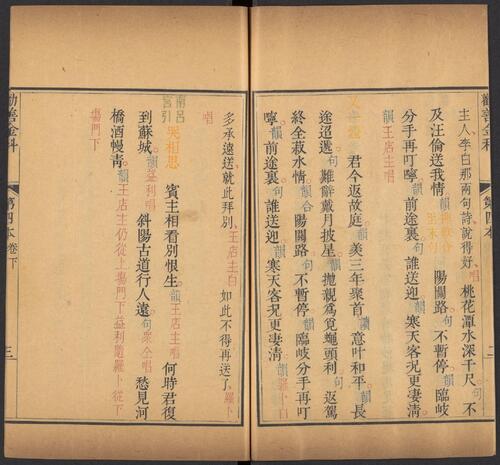 勸善金科 第四本 二
主人、李白那兩句詩說得好、唱 桃花潭水深千尺句不
及汪倫送我情韻 合至末 陽關路句不暫停韻臨岐
分手再叮嚀韻前途裏句誰送迎韻寒天客況更凄清
韻王店主唱
又一體 君今返故庭韻羨三年聚首句意叶和平韻長
途迢遞句難辭戴月披星韻拋親爲覓蠅頭利句返駕
終全菽水情韻合陽關路句不暫停韻臨岐分手再叮
嚀韻前途裏句誰送迎韻寒天客況更凄清韻羅卜白
多承遠送就此拜別、王店主白 如此不得再送了、羅卜
唱
南呂宮引 哭相思 賓主相看別恨生韻王店主唱 何時君復
到蘇城韻益利唱 斜陽古道行人遠句衆仝唱 愁見河
橋酒幔青韻王店主仍從上塲門下益利隨羅卜從下
塲門下
勸善金科 第四本卷下 三